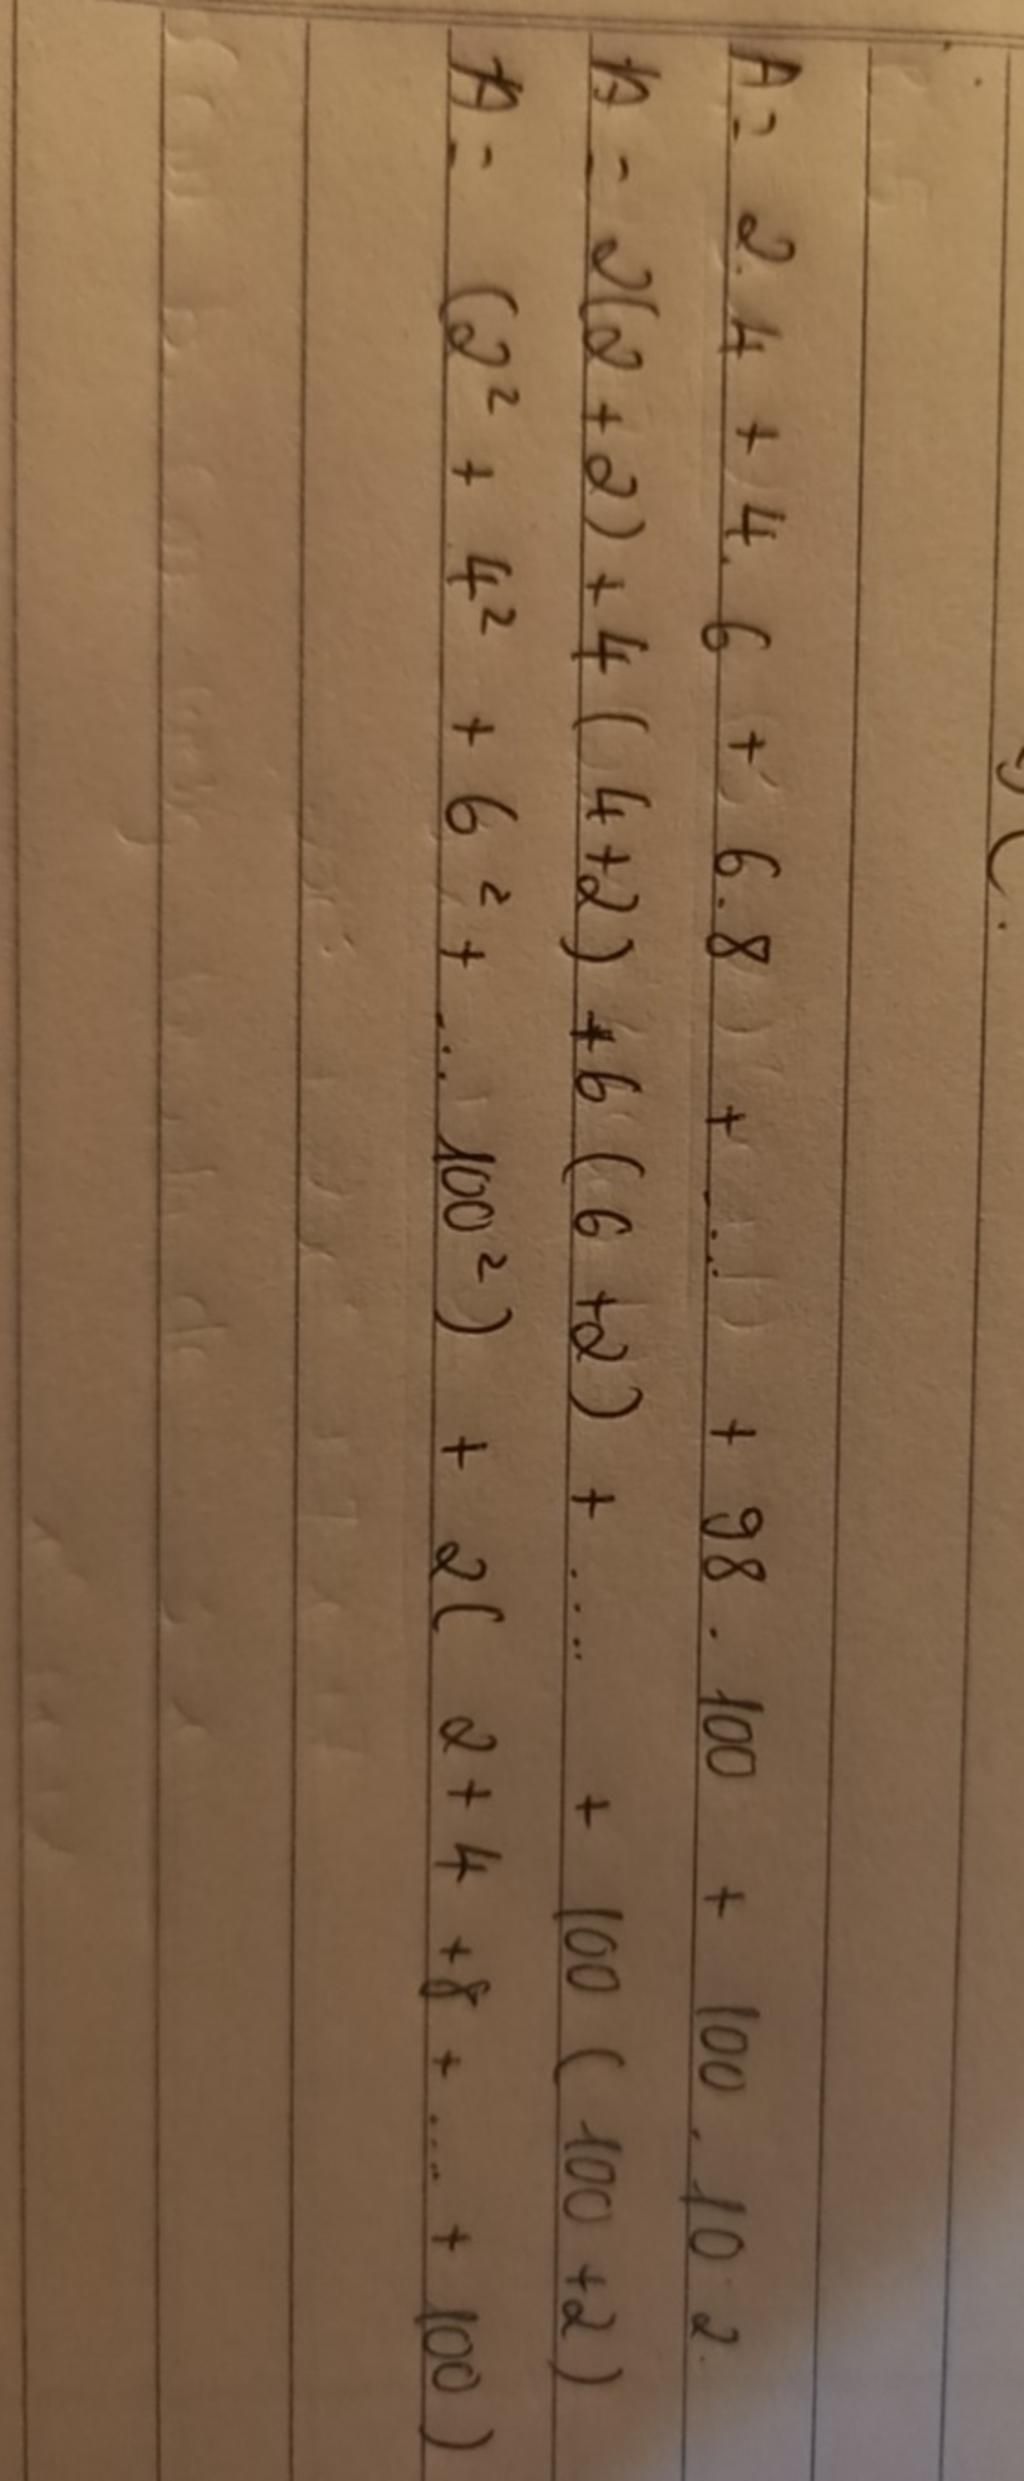 A = 2.4 + 4.6 + 6.8 + ... + 98.100 + 100.102
A = 2(2+2) + 4(4+2) + 6(6+2) + .... + 100(100+2)
A = (2² + 4² + 6² + ... 100²) + 2(2+4+8+....+100)